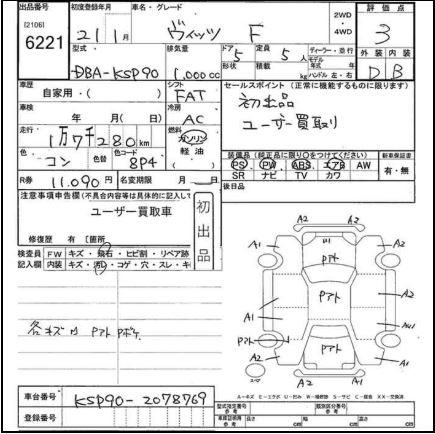 出品番号 初度登録年月 車名・グレード 2WD 評価点
[2106] 21 1月 ヴィッツ F ・4WD 3
6221 型式 排気量 ドア 定員 ディーラー・並行 外装 内装
DBA-KSP90 1,000cc 5 5人 モデル年式 年式 D B
形状 積載 kg ハンドル 左・右
車歴 シフト セールスポイント(正常に機能するものに限ります)
自家用・( ) FAT 初出品
車検 冷房 ユーザー買取り
年 月( 日) AC
走行 燃料
1万7千280km ガソリン
色 色替 色コード 軽油 装備品(純正品に限り○をつけてください) 新車保証書
コン 8P4 PS PW ABS エアB AW 有・無
SR ナビ TV カワ
R券 11,090円 名変期限 月 日 後日品
注意事項申告欄(不具合内容等は具体的に記入して 初出品
ユーザー買取車
修復歴 有 [箇所
検査員 FW キズ・飛石・ヒビ割・リペア跡
記入欄 内装 キズ・汚れ・コゲ・穴・スレ・キ
各キズ凹 Pアト Pボケ
A2 A2
A1 A2
Pアト
Pアト A2
A1
Pアト Pアト
A1
A2 A2
車台番号 KSP90-2078769
登録番号
型式指定番号 類別区分番号
長さ cm 幅 cm 高さ cm